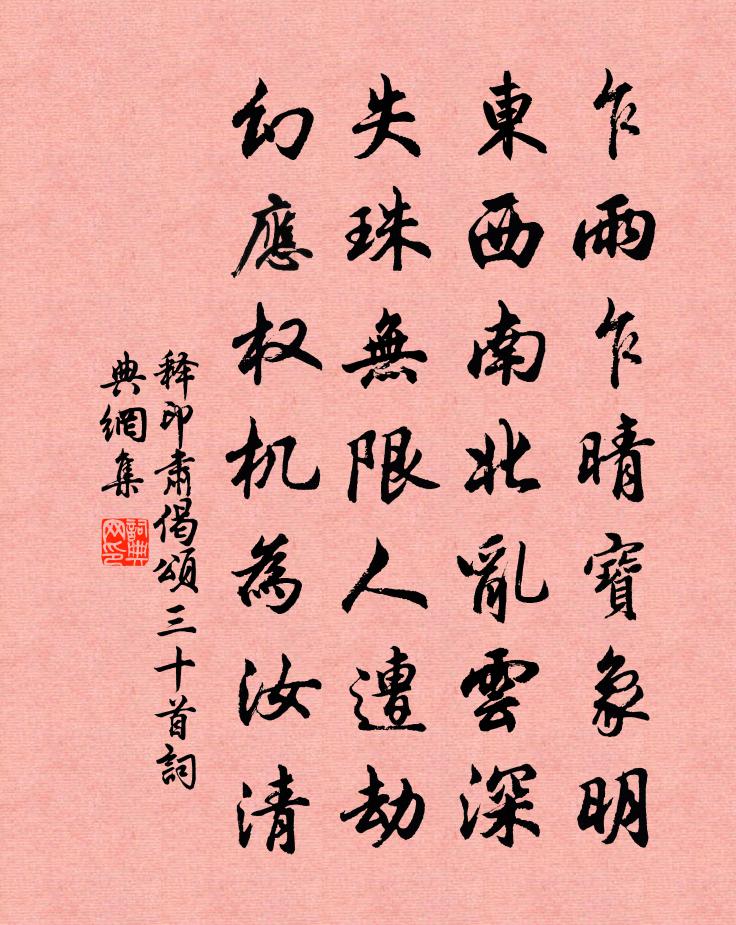 乍雨乍晴寶象明
東西南北亂雲深
失珠無限人遭劫
幻應权机為汝清
释印肃偈頌三十首詞
典網集
詞典网印